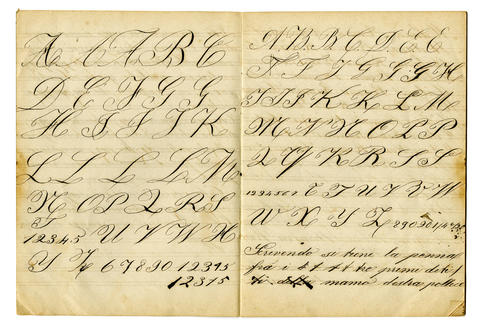 A A A B C
D E F G G
H I J I K
L L L L M
N O P Q R S
T
1 2 3 4 5 U V W X
Y Z 6 7 8 9 0 1 2 3 4 5
1 2 3 1 5
A B B C D E E
F F J G G G H
I I J K K L M
M N N O L P
Q K R S S
1 2 3 4 5 6 7 T U V V W
W X Y Z 8 9 0
Scrivendo si tiene la penna
fra i tre primi diti
della mano destra